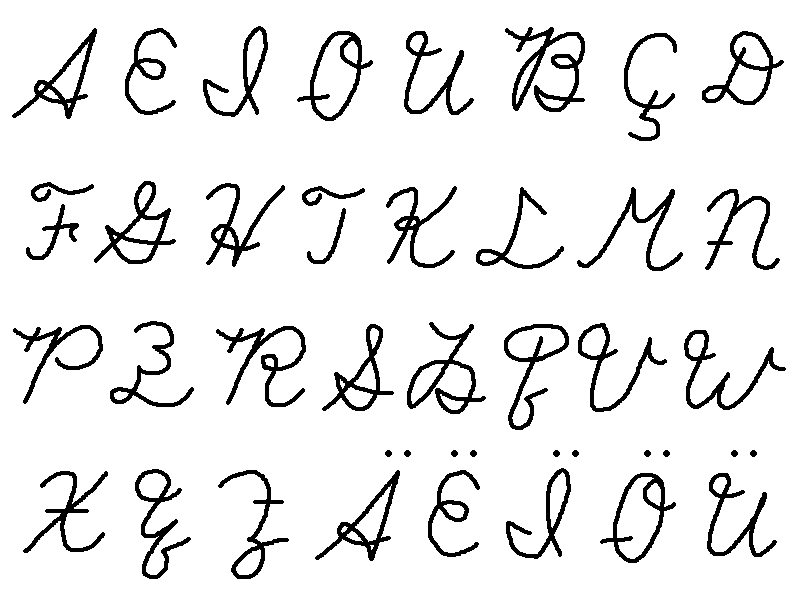 A E I O U B Ç D
F G H T K L M N
P R S V W
X Y Z Ä Ë Ï Ö Ü